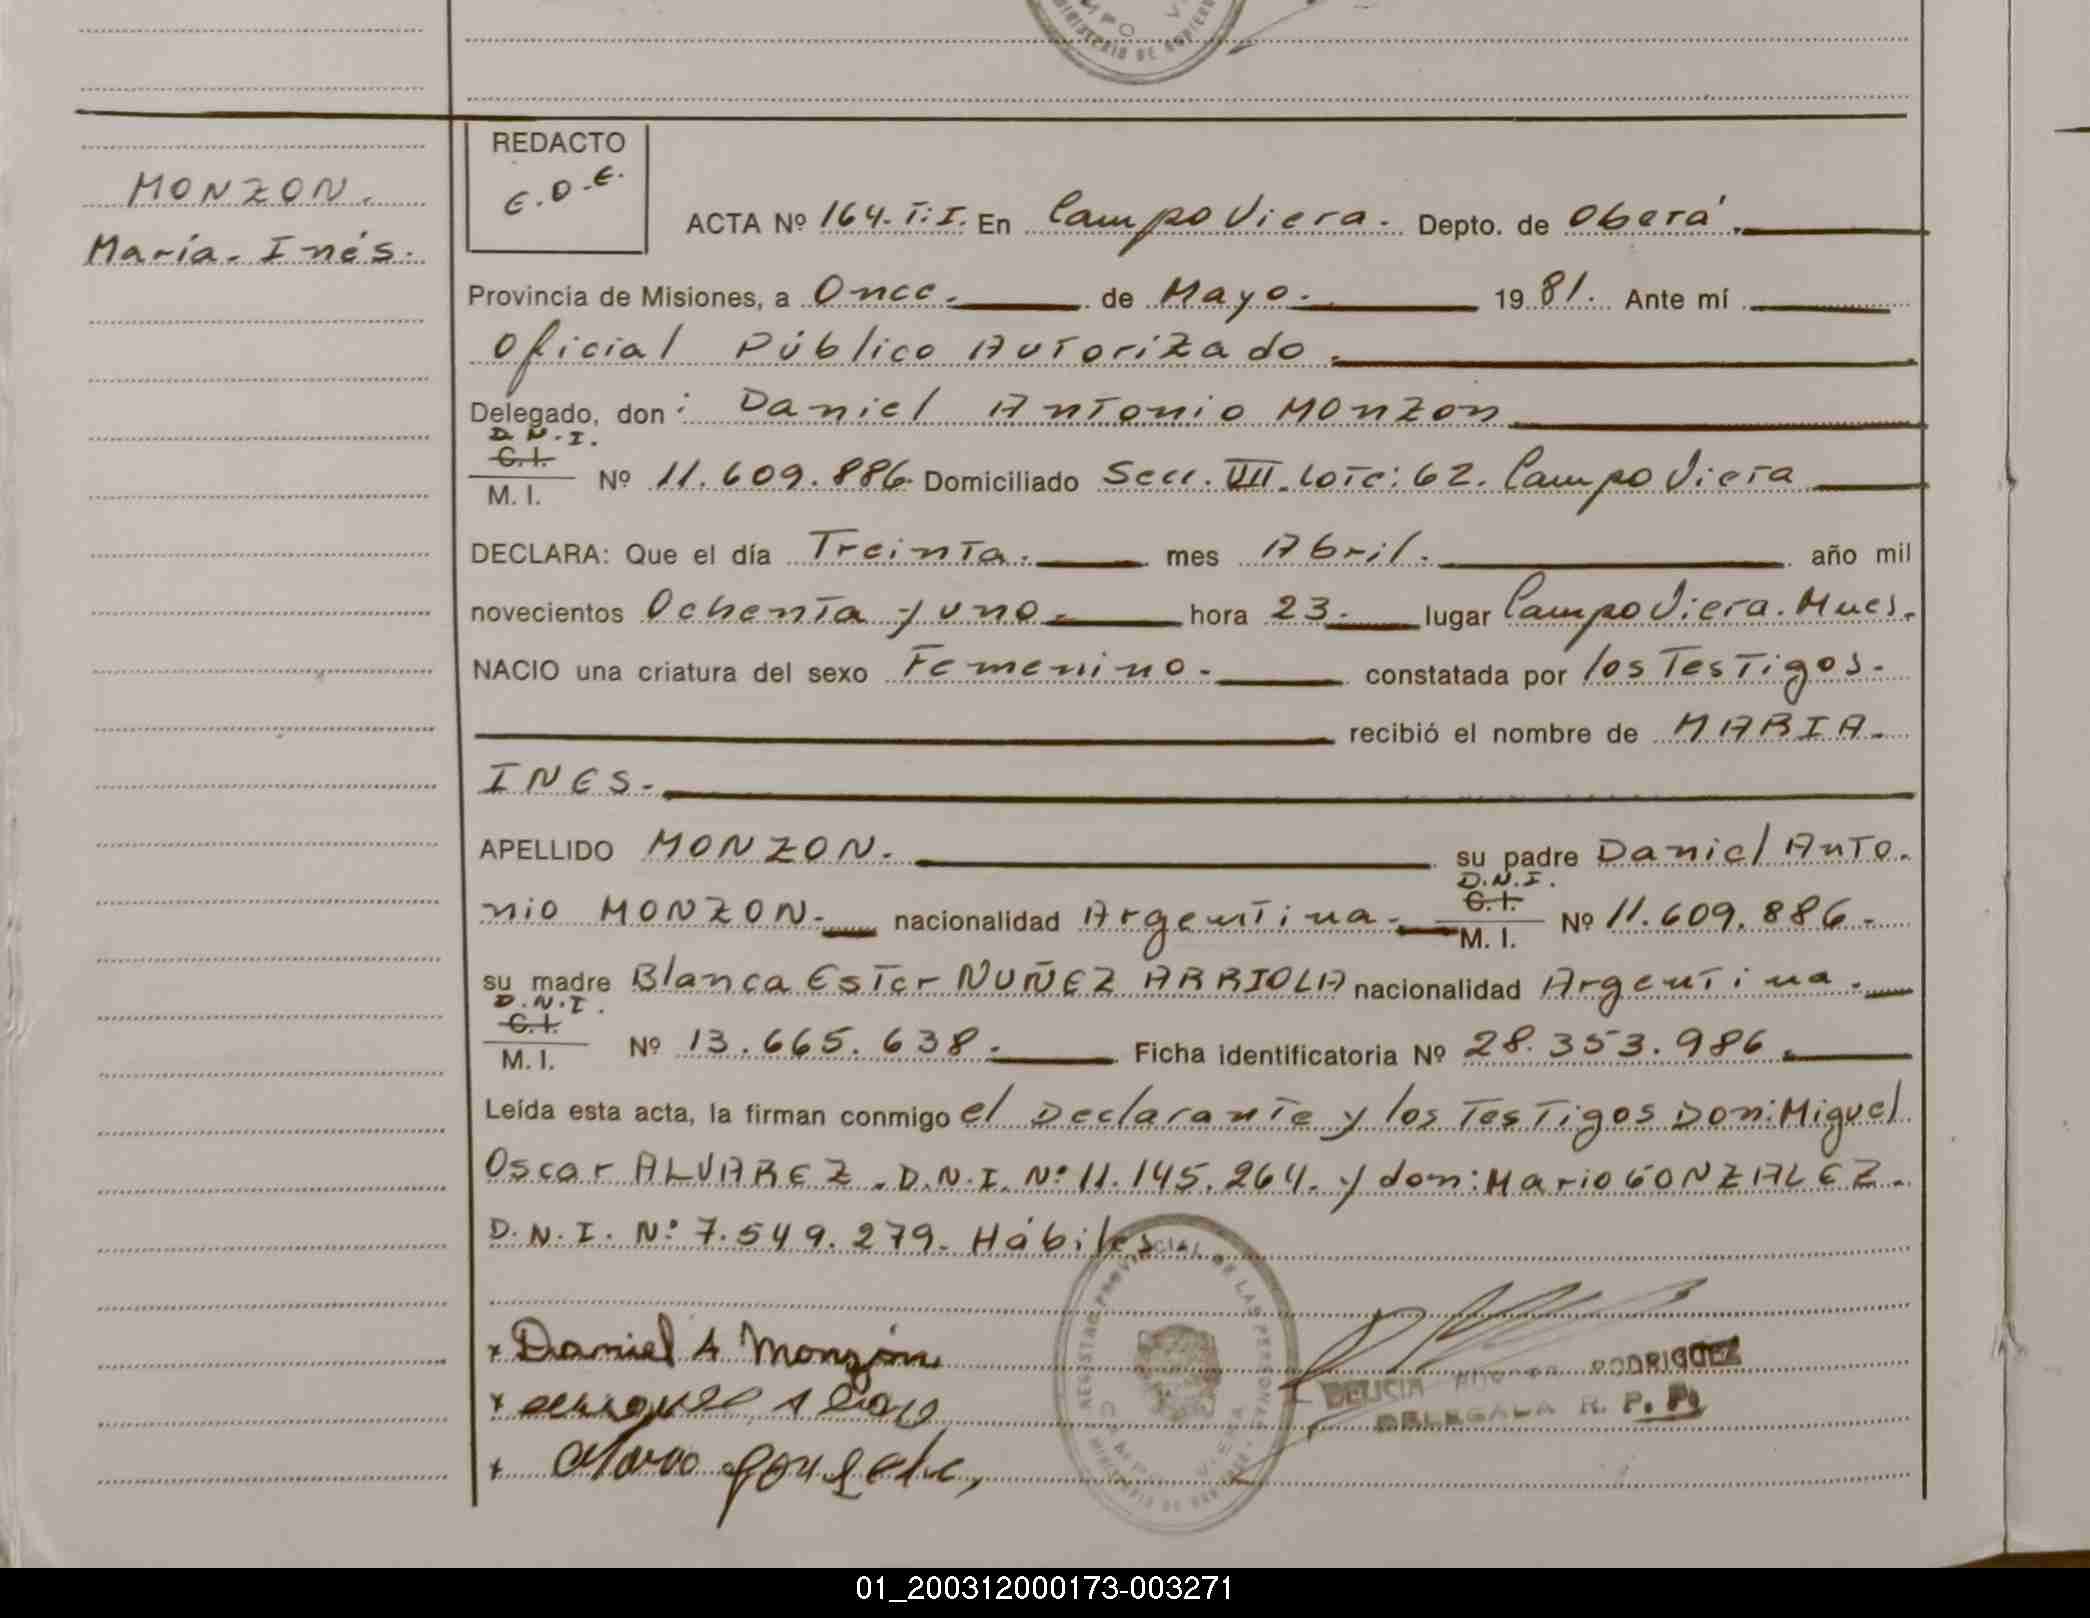 MPO V
MINISTERIO DE GOBIERN
MONZON.
María. Inés.
REDACTO
E.D.E.
ACTA Nº 164. T: I. En Campo Viera. Depto. de Oberá.
Provincia de Misiones, a Once. de Mayo. 19 81. Ante mí
Oficial Público Autorizado.
Delegado, don: Daniel Antonio Monzon
D.N.I.
C.I.
M. I. Nº 11.609.886. Domiciliado Secc. VIII. Lote: 62. Campo Viera
DECLARA: Que el día Treinta. mes Abril. año mil
novecientos Ochenta y uno. hora 23. lugar Campo Viera. Mnes.
NACIO una criatura del sexo Femenino. constatada por los Testigos.
recibió el nombre de MARIA.
INES.
APELLIDO MONZON. su padre Daniel Anto.
D.N.I.
C.I.
nio MONZON. nacionalidad Argentina. M. I. Nº 11.609.886.
su madre Blanca Ester NUÑEZ ARRIOLA nacionalidad Argentina.
D.N.I.
C.I.
M. I. Nº 13.665.638. Ficha identificatoria Nº 28.353.986.
Leída esta acta, la firman conmigo el Declarante y los Testigos Don: Miguel
Oscar ALVAREZ. D.N.I. Nº 11.145.264. y don: Mario GONZALEZ.
D.N.I. Nº 7.549.279. Hábiles
REGISTRO PROVINCIAL DE LAS PERSONAS
CAMPO VIERA
MINISTERIO DE GOBIERNO
x Daniel A Monzón
x
x Mario Gonzalez
DELICIA RODRIGUEZ
DELEGADA R. P. P.
01_200312000173-003271